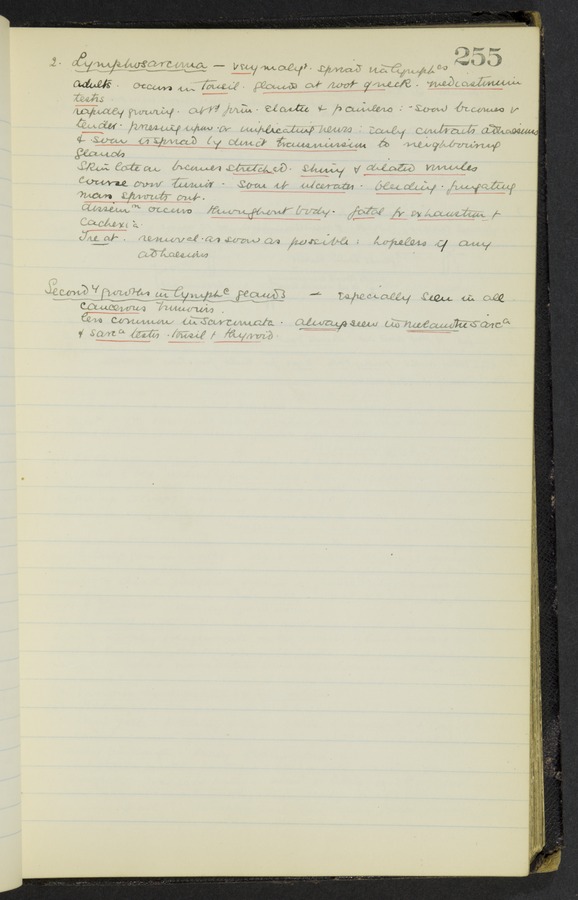 255
2. Lymphosarcoma — very maligt. spread via lymphcs
adults. occurs in tonsil. glands at root of neck. mediastinum
testis.
rapidly growing. at 1st firm. elastic & painless: - soon becomes
tender. pressing upon or implicating nerves: early contracts adhesions
& soon is spread by direct transmission to neighbouring
glands
Skin later on becomes stretched. shiny & dilated venules
course over tumour. soon it ulcerates. bleeding. fungating
mass sprouts out.
dissemn occurs throughout body. fatal fr exhaustion &
cachexia.
Treat. removal as soon as possible: hopeless if any
adhesions
Secondy growths in lymphc glands — especially seen in all
cancerous tumours.
less common in sarcomata. always seen in melanotic sarca
& sarca testis. tonsil & thyroid.